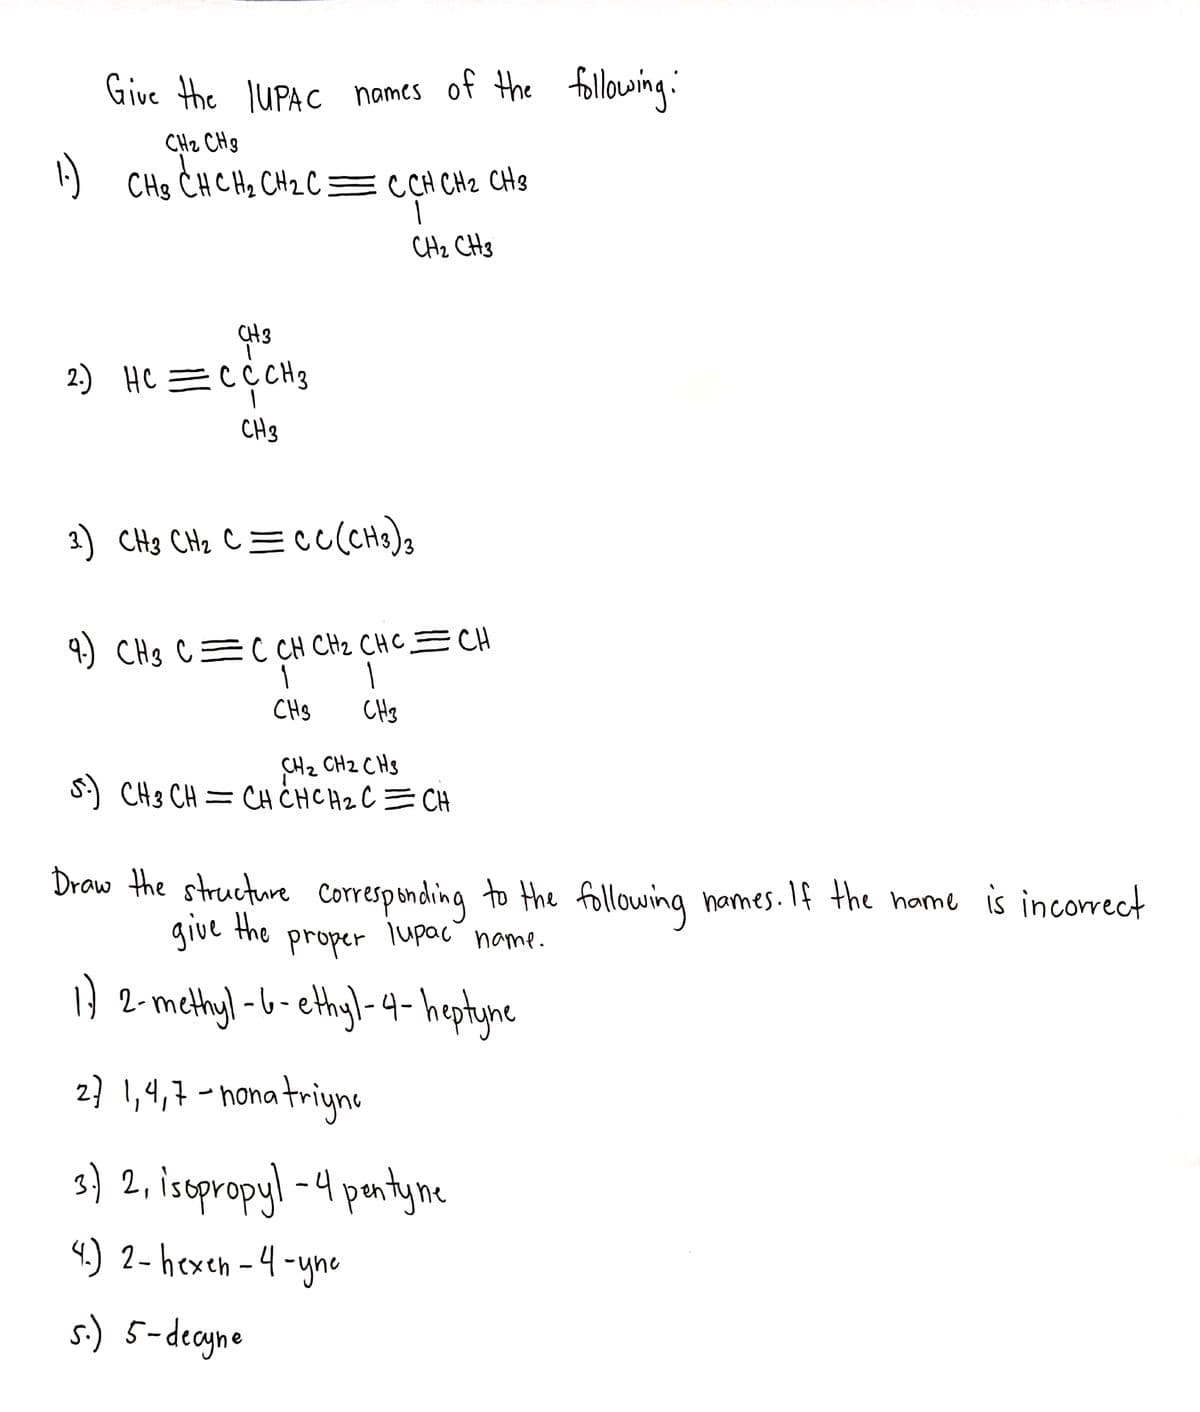 Give the IUPAC names of the following:
CH2 CH3
1.) CH3 CHCH2 CH2C ≡ CCH CH2 CH3
CH2 CH3
CH3
2.) HC ≡ CCCH3
CH3
3.) CH3 CH2 C ≡ CC(CH3)3
4.) CH3 C ≡ C CH CH2 CHC ≡ CH
CH3 CH3
CH2 CH2 CH3
5.) CH3 CH = CH CHCH2 C ≡ CH
Draw the structure corresponding to the following names. If the name is incorrect
give the proper iupac name.
1.) 2-methyl-6-ethyl-4-heptyne
2.) 1,4,7-nonatriyne
3.) 2, isopropyl-4 pentyne
4.) 2-hexen-4-yne
5.) 5-decyne